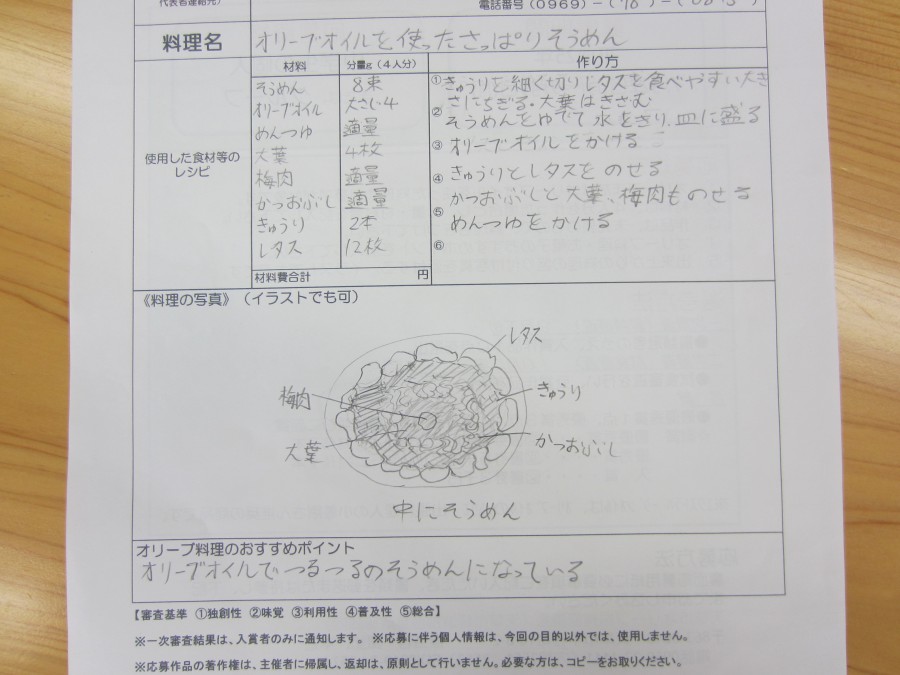 代表者連絡先）
電話番号（0969）-（
料理名
オリーブオイルを使ったさっぱりそうめん
使用した食材等の
レシピ
材料 分量g（4人分）
そうめん 8束
オリーブオイル 大さじ4
めんつゆ 適量
大葉 4枚
梅肉 適量
かつおぶし 適量
きゅうり 2本
レタス 12枚
材料費合計 円
作り方
①きゅうりを細く切りレタスを食べやすい大き
さにちぎる。大葉はきざむ
②そうめんをゆでて水をきり、皿に盛る
③オリーブオイルをかける
④きゅうりとレタスをのせる
かつおぶしと大葉、梅肉ものせる
⑤めんつゆをかける
⑥
《料理の写真》（イラストでも可）
レタス
梅肉
きゅうり
大葉
かつおぶし
中にそうめん
オリーブ料理のおすすめポイント
オリーブオイルでつるつるのそうめんになっている
【審査基準 ①独創性 ②味覚 ③利用性 ④普及性 ⑤総合】
※一次審査結果は、入賞者のみに通知します。 ※応募に伴う個人情報は、今回の目的以外では、使用しません。
※応募作品の著作権は、主催者に帰属し、返却は、原則として行いません。必要な方は、コピーをお取りください。